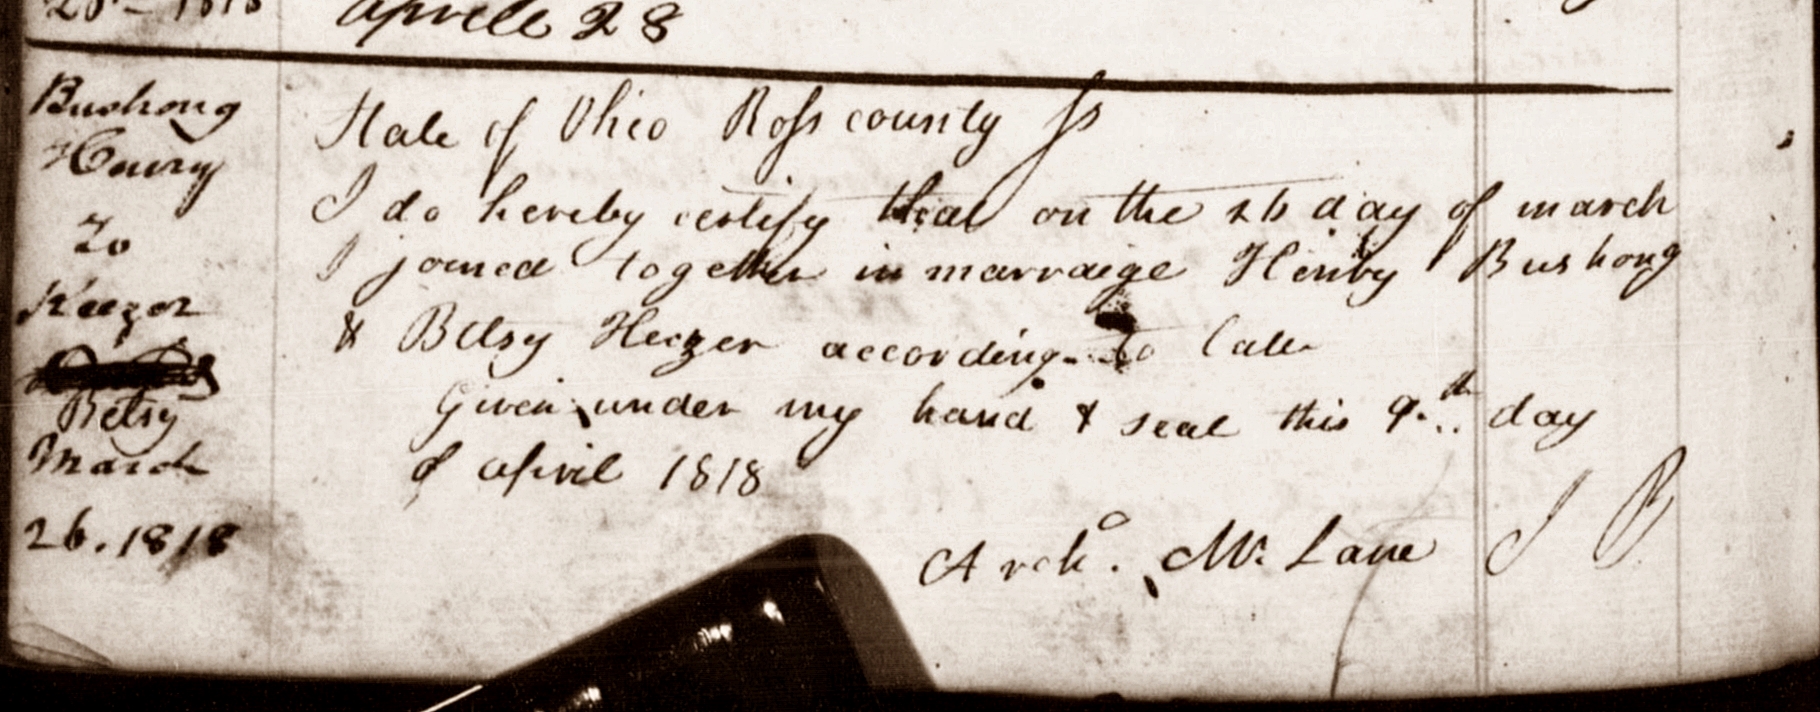 28 - 1818 aprile 28
Bushong
Henry
To
Keezer
Betsy
March
26. 1818
State of Ohio Ross county Ss
I do hereby certify that on the 26 day of march
I joined together in marraige Henry Bushong
& Betsy Keezer according to law
Given under my hand & seal this 9th day
of april 1818
Archd. Mc. Lane J P